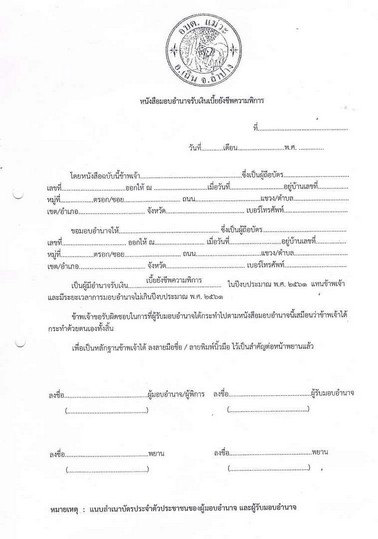 อบต. แม่วะ
อ.เถิน จ.ลำปาง
หนังสือมอบอำนาจรับเงินเบี้ยยังชีพความพิการ
ที่..............................
วันที่............เดือน.......................พ.ศ. ....................
โดยหนังสือฉบับนี้ข้าพเจ้า..........................................ซึ่งเป็นผู้ถือบัตร..............................
เลขที่..........................ออกให้ ณ ......................เมื่อวันที่......................อยู่บ้านเลขที่...............
หมู่ที่....................ตรอก/ซอย........................ ถนน..........................แขวง/ตำบล......................
เขต/อำเภอ........................ จังหวัด............................... เบอร์โทรศัพท์..........................
ขอมอบอำนาจให้..........................................ซึ่งเป็นผู้ถือบัตร..............................
เลขที่.......................... ออกให้ ณ ......................เมื่อวันที่......................อยู่บ้านเลขที่...............
หมู่ที่....................ตรอก/ซอย........................ ถนน..........................แขวง/ตำบล......................
เขต/อำเภอ........................จังหวัด............................... เบอร์โทรศัพท์..........................
เป็นผู้มีอำนาจรับเงิน........เบี้ยยังชีพความพิการ........ ในปีงบประมาณ พ.ศ. ๒๕๖๑ แทนข้าพเจ้า
และมีระยะเวลาการมอบอำนาจไม่เกินปีงบประมาณ พ.ศ. ๒๕๖๑
ข้าพเจ้าขอรับผิดชอบในการที่ผู้รับมอบอำนาจได้กระทำไปตามหนังสือมอบอำนาจนี้เสมือนว่าข้าพเจ้าได้
กระทำด้วยตนเองทั้งสิ้น
เพื่อเป็นหลักฐานข้าพเจ้าได้ ลงลายมือชื่อ / ลายพิมพ์นิ้วมือ ไว้เป็นสำคัญต่อหน้าพยานแล้ว
ลงชื่อ........................ผู้มอบอำนาจ/ผู้พิการ ลงชื่อ..............................ผู้รับมอบอำนาจ
(..............................) (..............................)
ลงชื่อ........................พยาน ลงชื่อ..............................พยาน
(..............................) (..............................)
หมายเหตุ : แนบสำเนาบัตรประจำตัวประชาชนของผู้มอบอำนาจ และผู้รับมอบอำนาจ